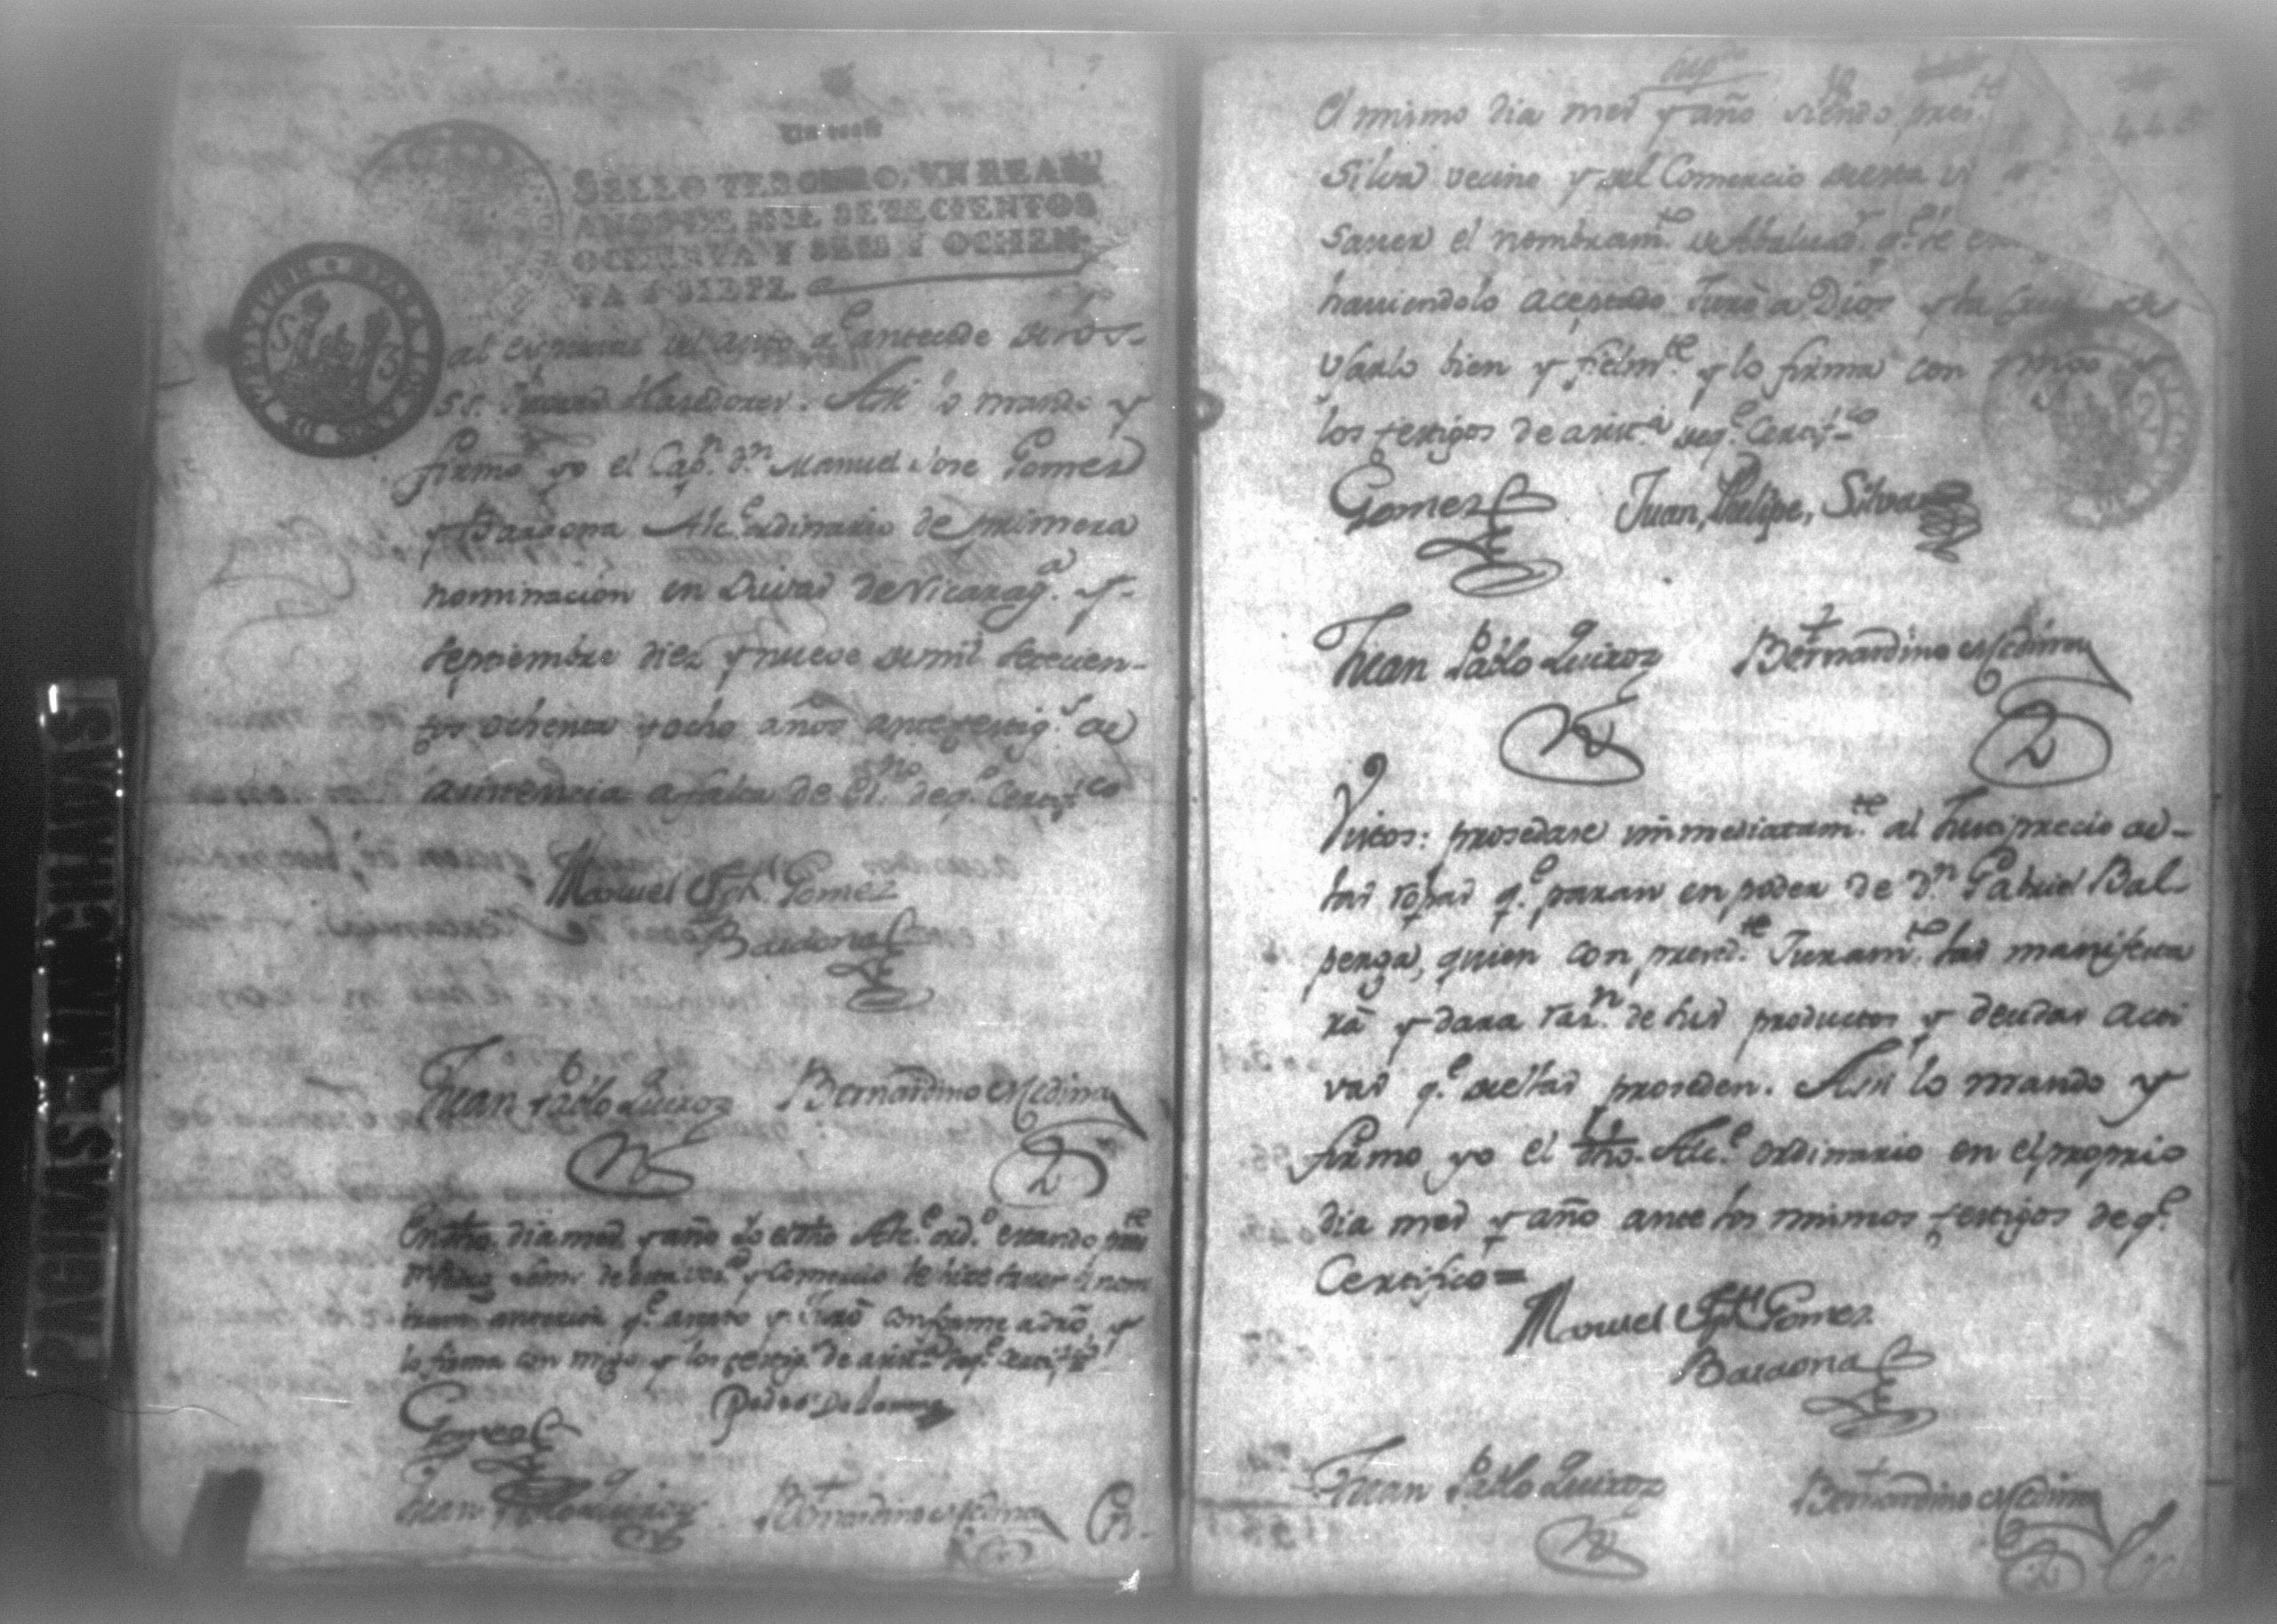 SELLO TERCERO, VN REAL
AÑOS DE MIL SETECIENTOS
OCHENTA Y SEIS Y OCHEN-
TA Y SIETE
al expreso del auto q.e antecede
SS. Asi lo mando y
firmo yo el Cap.n d.n Manuel Jose Gomez
y Bardona Alc.e ordinario de primera
nominacion en de Nicarag.a y
septiembre diez y nueve de mil setecien-
tos ochenta y ocho años ante testig.s de
asistencia a falta de Es.no de q.e Certif.co
Manuel Jph. Gomez
Bardona
Juan Pablo Quiroz Bernardino Medina
En dho. dia mes y año Yo el dho Alc.e ord.o estando pres.te
de y Comercio le hice saver el nom
anterior q.e acepto y Juró conforme a dro, y
lo firma con migo y los testig.s de asist.a de q.e certif.co
Gomez Pedro
Juan Pablo Quiroz Bernardino Medina
El mismo dia mes y año siendo pres.te
Silva vecino y del Comercio de esta
saver el nombram.to de q.e se
haviendolo aceptado Juró a Dios y la Cruz
usarlo bien y fielm.te y lo firma con migo y
los testigos de asist.a de q.e Certif.co
Gomez Juan, Phelipe, Silva
Juan Pablo Quiroz Bernardino Medina
Vistos: prosedase immediatam.te al Justiprecio de
las ropas q.e paran en poder de D.n Gabriel Bal-
penga, quien con prev.te Juram.to las manifesta
rá y dara raz.n de sus productos y deudas acti
vas q.e de ellas proseden. Asi lo mando y
firmo yo el dho. Alc.e ordinario en el proprio
dia mes y año ante los mismos testigos de q.e
Certifico=
Manuel Jph Gomez
Bardona
Juan Pablo Quiroz Bernardino Medina
PAGINAS MANCHADAS